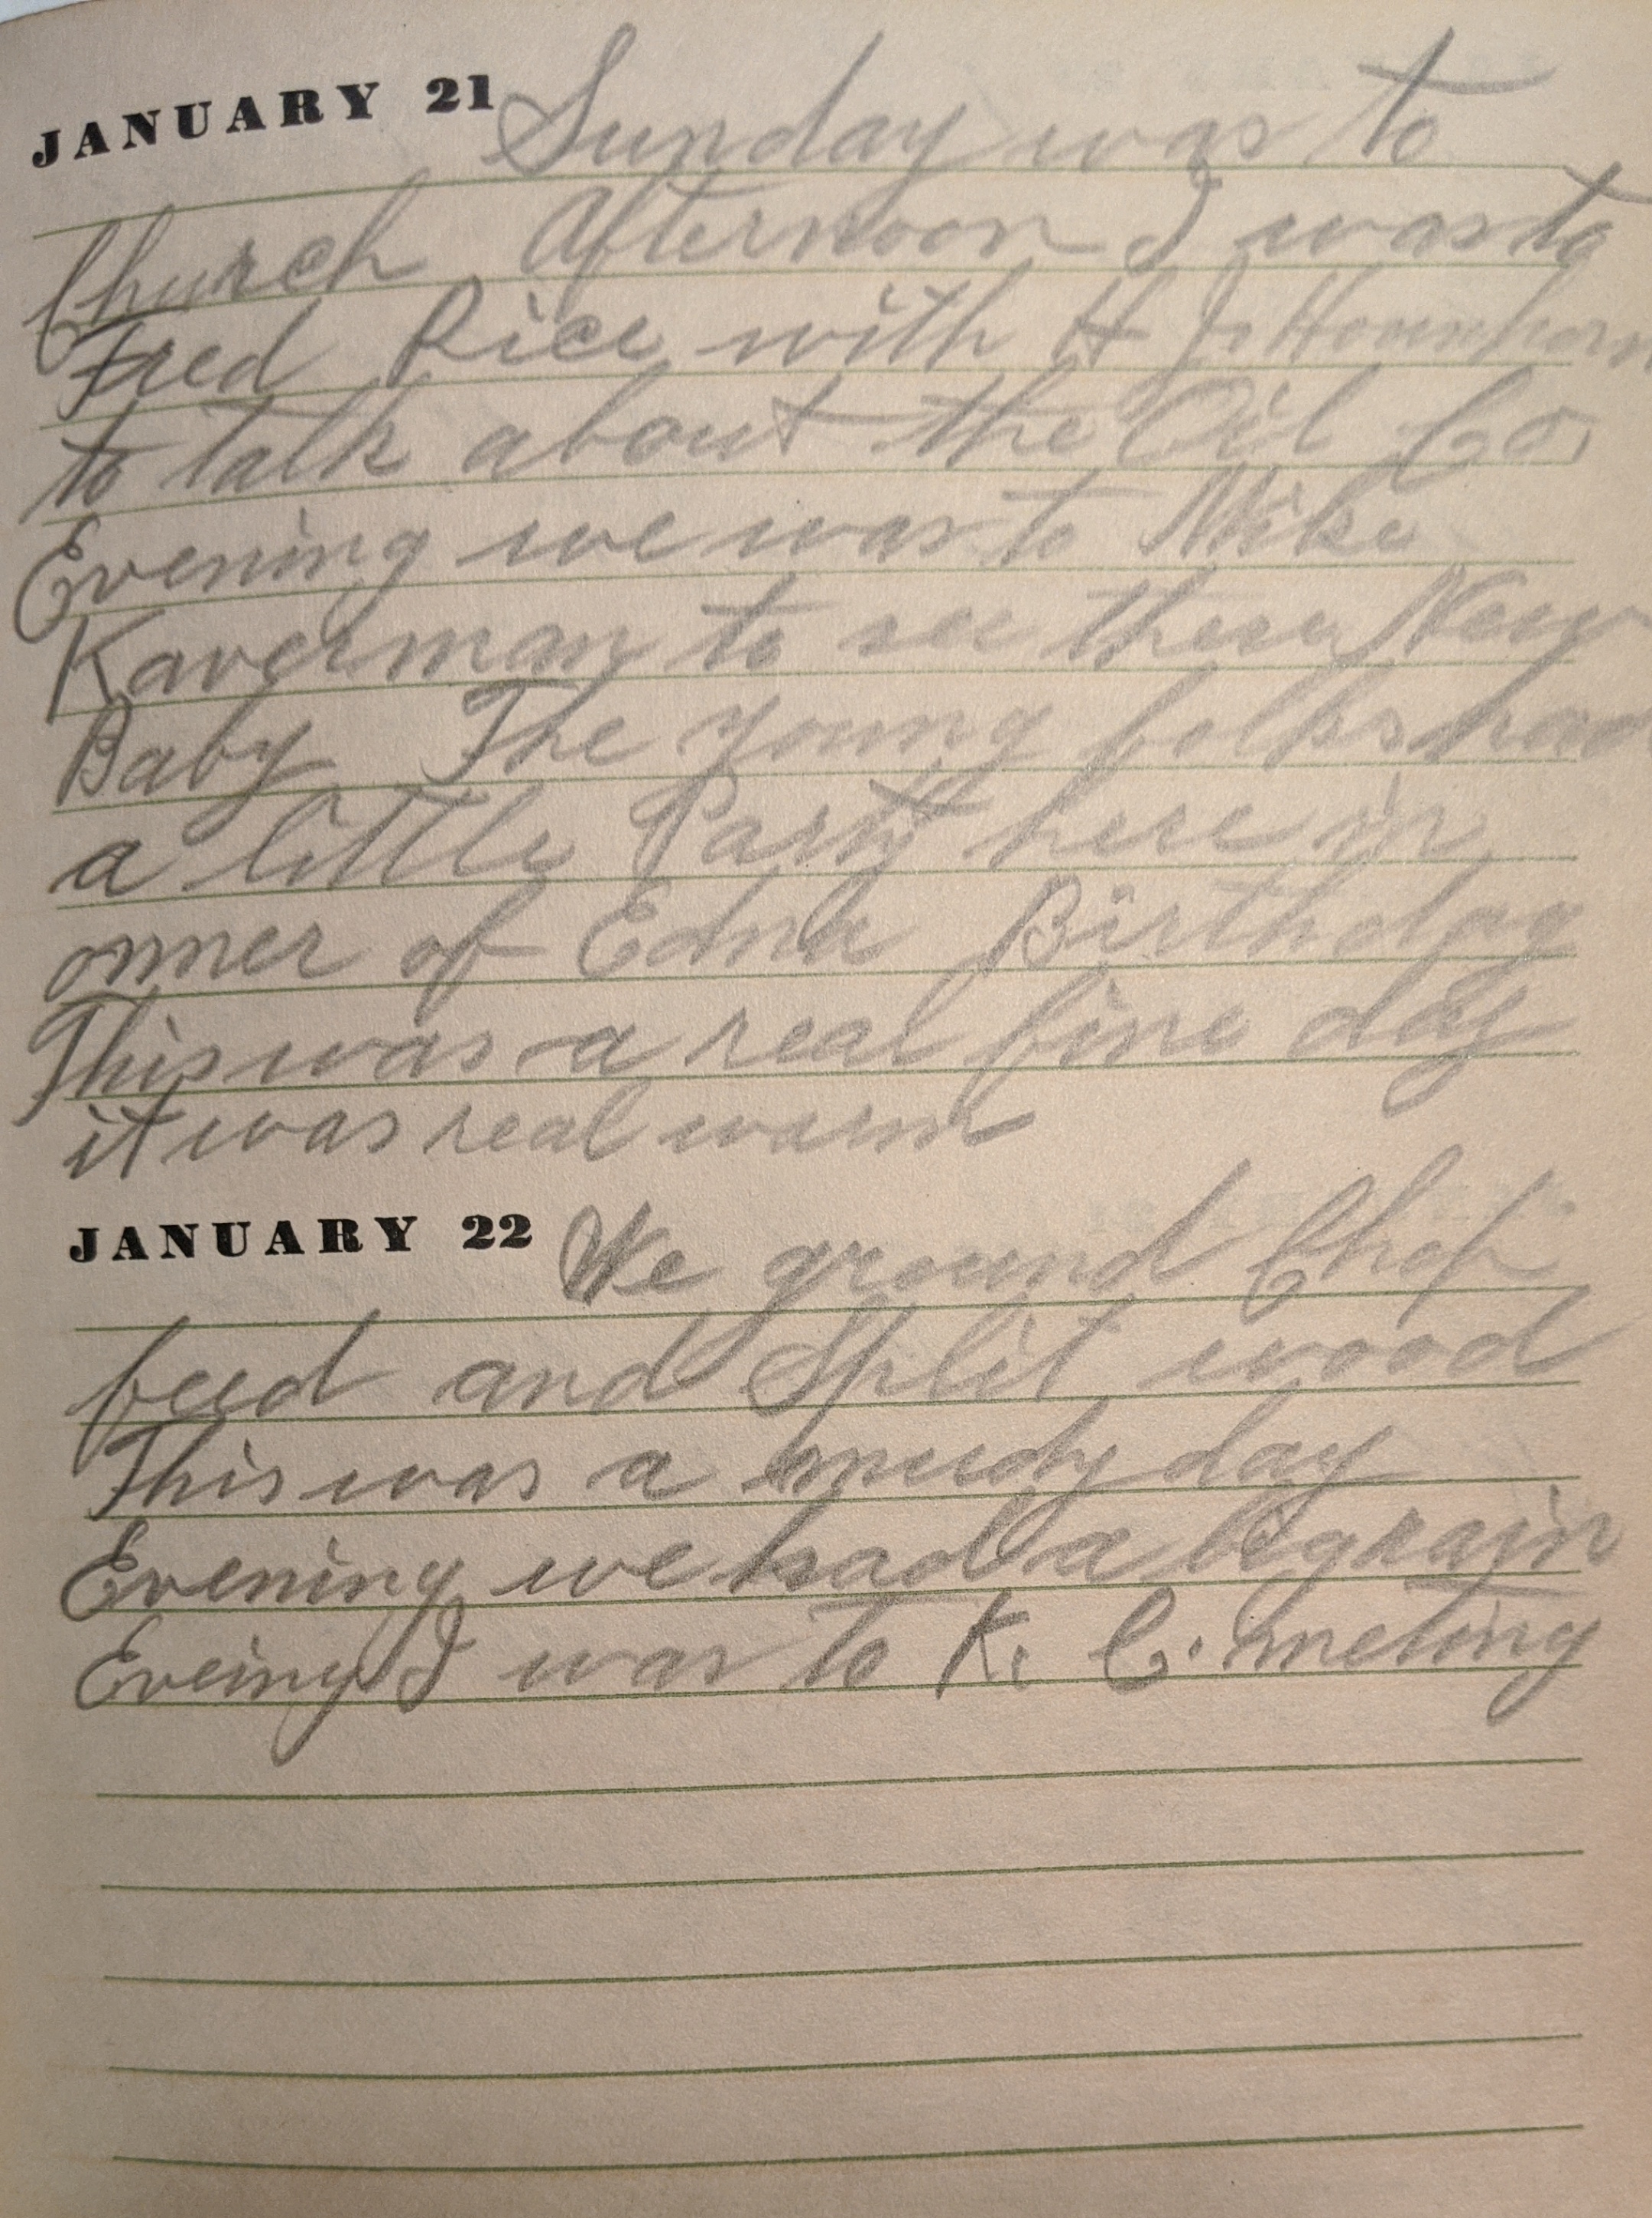 JANUARY 21 Sunday was to
Church Afternoon I was to
Fred Rice with H J
to talk about the Oil Co,
Evening we was to Mike
Kaverman to see there New
Baby The young folks had
a little Party here in
onner of Edna Birthday
This was a real fine day
it was real warm
JANUARY 22 We ground Chop
feed and Split wood
This was a mudy day
Evening we had a big rain
Eveing I was to K. C. meting